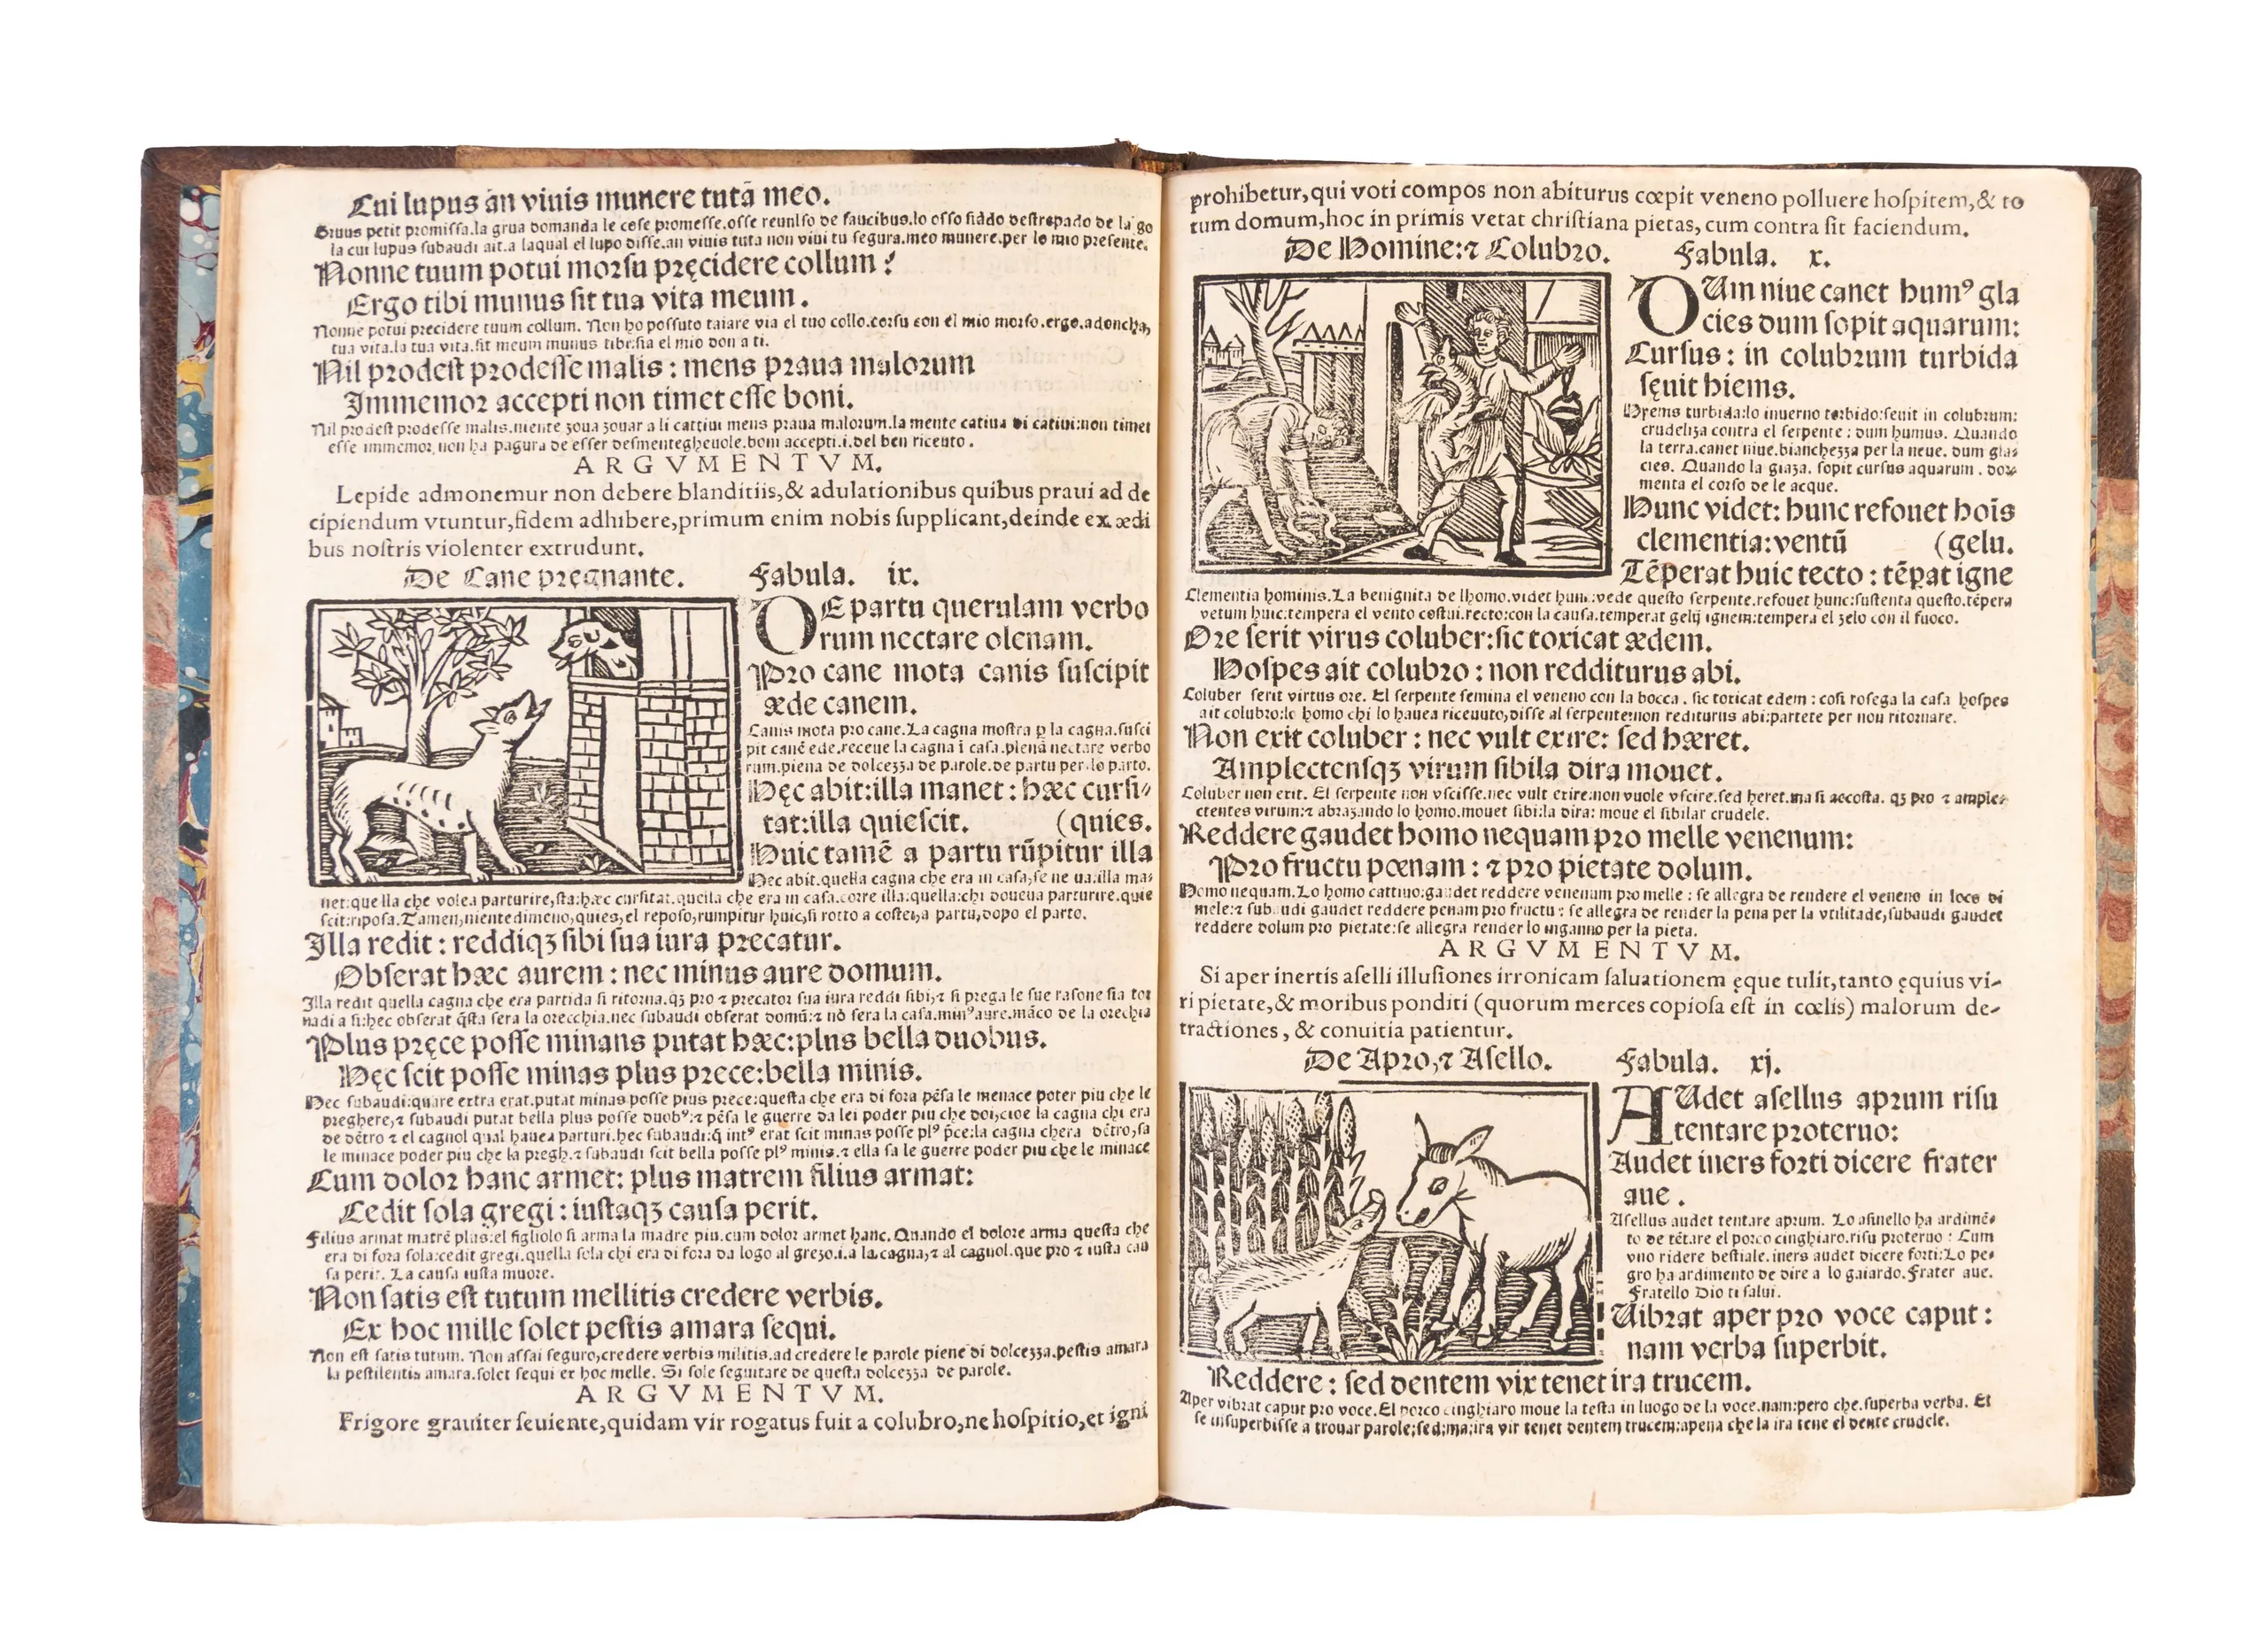 Cui lupus an viuis munere tutã meo.
Gruus petit promissa.la grua domanda le cose promesse.osse reuulso de faucibus.lo osso siãdo destrepado de la go
la cui lupus subaudi ait.a laqual el lupo disse.an viuis tuta non viui tu segura.meo munere.per lo mio presente.
Nonne tuum potui morsu pręcidere collum?
Ergo tibi munus sit tua vita meum.
Nonne potui precidere tuum collum. Non ho possuto taiare via el tuo collo.corsu con el mio morso.ergo.adoncha,
tua vita.la tua vita.sit meum munus tibi:sia el mio don a ti.
Nil prodest prodesse malis : mens praua malorum
Immemor accepti non timet esse boni.
Nil prodest prodesse malis.niente zoua zouar a li cattiui mens praua malorum.la mente catiua di catiui:non timet
esse immemor non ha pagura de esser desmentegheuole.boni accepti.i.del ben riceuto.
ARGVMENTVM.
Lepide admonemur non debere blanditiis,& adulationibus quibus praui ad de
cipiendum vtuntur,fidem adhibere,primum enim nobis supplicant,deinde ex ædi
bus nostris violenter extrudunt.
De Cane pręgnante. Fabula. ix.
DE partu querulam verbo
rum nectare olenam.
Pro cane mota canis suscipit
æde canem.
Canis mota pro cane.La cagna mostra p la cagna.susci
pit canẽ ede.receue la cagna ĩ casa.plenã nectare verbo
rum.piena de dolcezza de parole.de partu per lo parto.
Hęc abit:illa manet : hæc cursi-
tat:illa quiescit. (quies.
Huic tamẽ a partu rũpitur illa
Hec abit.quella cagna che era in casa,se ne ua.illa ma-
net:quella che volea parturire,sta:hæc cursitat.quella che era in casa.corre illa:quella:chi doueua parturire.quie
scit:riposa.Tamen,nientedimeno,quies,el reposo,rumpitur huic,si rotto a costei,a partu,dopo el parto.
Illa redit : reddiqꝫ sibi sua iura precatur.
Obserat hæc aurem : nec minus aure domum.
Illa redit quella cagna che era partida si ritorna.qꝫ pro ⁊ precator sua iura reddi sibi,⁊ si prega le sue rasone sia tor
nadi a si:hec obserat q̃sta sera la orecchia.nec subaudi obserat domũ:⁊ nõ sera la casa.minꝰ aure.mãco de la orechia
Plus pręce posse minans putat hæc:plus bella duobus.
Hęc scit posse minas plus prece:bella minis.
Hec subaudi:quare extra erat.putat minas posse pius prece:questa che era di fora pẽsa le menace poter piu che le
preghere,⁊ subaudi putat bella plus posse duobꝰ:⁊ pẽsa le guerre da lei poder piu che doi,cioe la cagna chi era
de dẽtro ⁊ el cagnol qual hauea parturi.hec subaudi:q̃ intꝰ erat scit minas posse plꝰ p̃ce:la cagna chera dẽtro,sa
le minace poder piu che la pregh.⁊ subaudi scit bella posse plꝰ minis.⁊ ella sa le guerre poder piu che le minace
Cum dolor hanc armet: plus matrem filius armat:
Cedit sola gregi : iustaqꝫ causa perit.
Filius armat matrẽ plus:el figliolo si arma la madre piu.cum dolor armet hanc. Quando el dolore arma questa che
era di fora sola:cedit gregi.quella sola chi era di fora da logo al grezo.i.a la cagna,⁊ al cagnol.que pro ⁊ iusta cau
sa perit. La causa iusta muore.
Non satis est tutum mellitis credere verbis.
Ex hoc mille solet pestis amara sequi.
Non est satis tutum. Non assai seguro,credere verbis militis.ad credere le parole piene di dolcezza.pestis amara
la pestilentia amara.solet sequi ex hoc melle. Si sole seguitare de questa dolcezza de parole.
ARGVMENTVM.
Frigore grauiter seuiente,quidam vir rogatus fuit a colubro,ne hospitio,et igni
prohibetur,qui voti compos non abiturus cœpit veneno polluere hospitem,& to
tum domum,hoc in primis vetat christiana pietas, cum contra sit faciendum.
De Homine:⁊ Colubro. Fabula. x.
DUm niue canet humꝰ gla
cies dum sopit aquarum:
Cursus : in colubrum turbida
sęuit hiems.
Hyems turbida:lo inuerno torbido:seuit in colubrum:
crudeliza contra el serpente : dum humus. Quando
la terra.canet niue.bianchezza per la neue. dum gla-
cies. Quando la giaza. sopit cursus aquarum . dor-
menta el corso de le acque.
Hunc videt: hunc refouet hoĩs
clementia:ventũ (gelu.
Tẽperat huic tecto : tẽpat igne
Clementia hominis.La benignita de lhomo.videt hunc:vede questo serpente.refouet hunc:sustenta questo.tẽpera
vetum huic:tempera el vento costui.tecto:con la causa.temperat gelu ignem:tempera el zelo con il fuoco.
Ore serit virus coluber:sic toxicat ædem.
Hospes ait colubro : non redditurus abi.
Coluber serit virtus ore. El serpente semina el veneno con la bocca . sic toxicat edem : cosi rosega la casa hospes
ait colubro:lo homo chi lo hauea riceuuto,disse al serpente:non rediturus abi:partete per non ritornare.
Non exit coluber : nec vult exire: sed hæret.
Amplectensqꝫ virum sibila dira mouet.
Coluber non exit. El serpente non vscisse.nec vult exire:non vuole vscire.sed heret.ma si accosta. qꝫ pro ⁊ ample-
ctentes virum:⁊ abrazando lo homo.mouet sibila dira: moue el sibilar crudele.
Reddere gaudet homo nequam pro melle venenum:
Pro fructu pœnam : ⁊ pro pietate dolum.
Homo nequam.Lo homo cattiuo:gaudet reddere venenum pro melle : se allegra de rendere el veneno in loco di
mele:⁊ subaudi gaudet reddere penam pro fructu : se allegra de render la pena per la vtilitade,subaudi gaudet
reddere dolum pro pietate:se allegra render lo niganno per la pieta.
ARGVMENTVM.
Si aper inertis aselli illusiones irronicam saluationem ęque tulit,tanto ęquius vi-
ri pietate,& moribus ponditi (quorum merces copiosa est in cœlis) malorum de-
tractiones, & conuitia patientur.
De Apro,⁊ Asello. Fabula. xj.
AUdet asellus aprum risu
tentare proteruo:
Audet iners forti dicere frater
aue.
Asellus audet tentare aprum. Lo asinello ha ardimẽ-
to de tẽtare el porco cinghiaro.risu proteruo : Cum
vno ridere bestiale.iners audet dicere forti:Lo pe-
gro ha ardimento de dire a lo gaiardo.Frater aue.
Fratello Dio ti salui.
Uibrat aper pro voce caput :
nam verba superbit.
Reddere : sed dentem vix tenet ira trucem.
Aper vibrat caput pro voce.El porco cinghiaro moue la testa in luogo de la voce.nam:pero che.superba verba. El
se insuperbisse a trouar parole;sed;ma;ira vir tenet dentem trucem:apena che la ira tene el dente crudele.